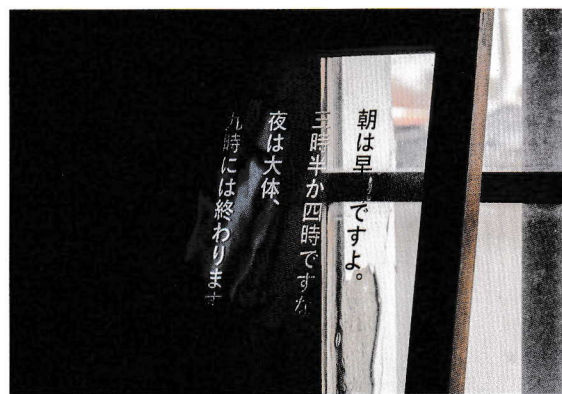 朝は早いですよ。
三時半か四時ですな
夜は大体、
九時には終わります